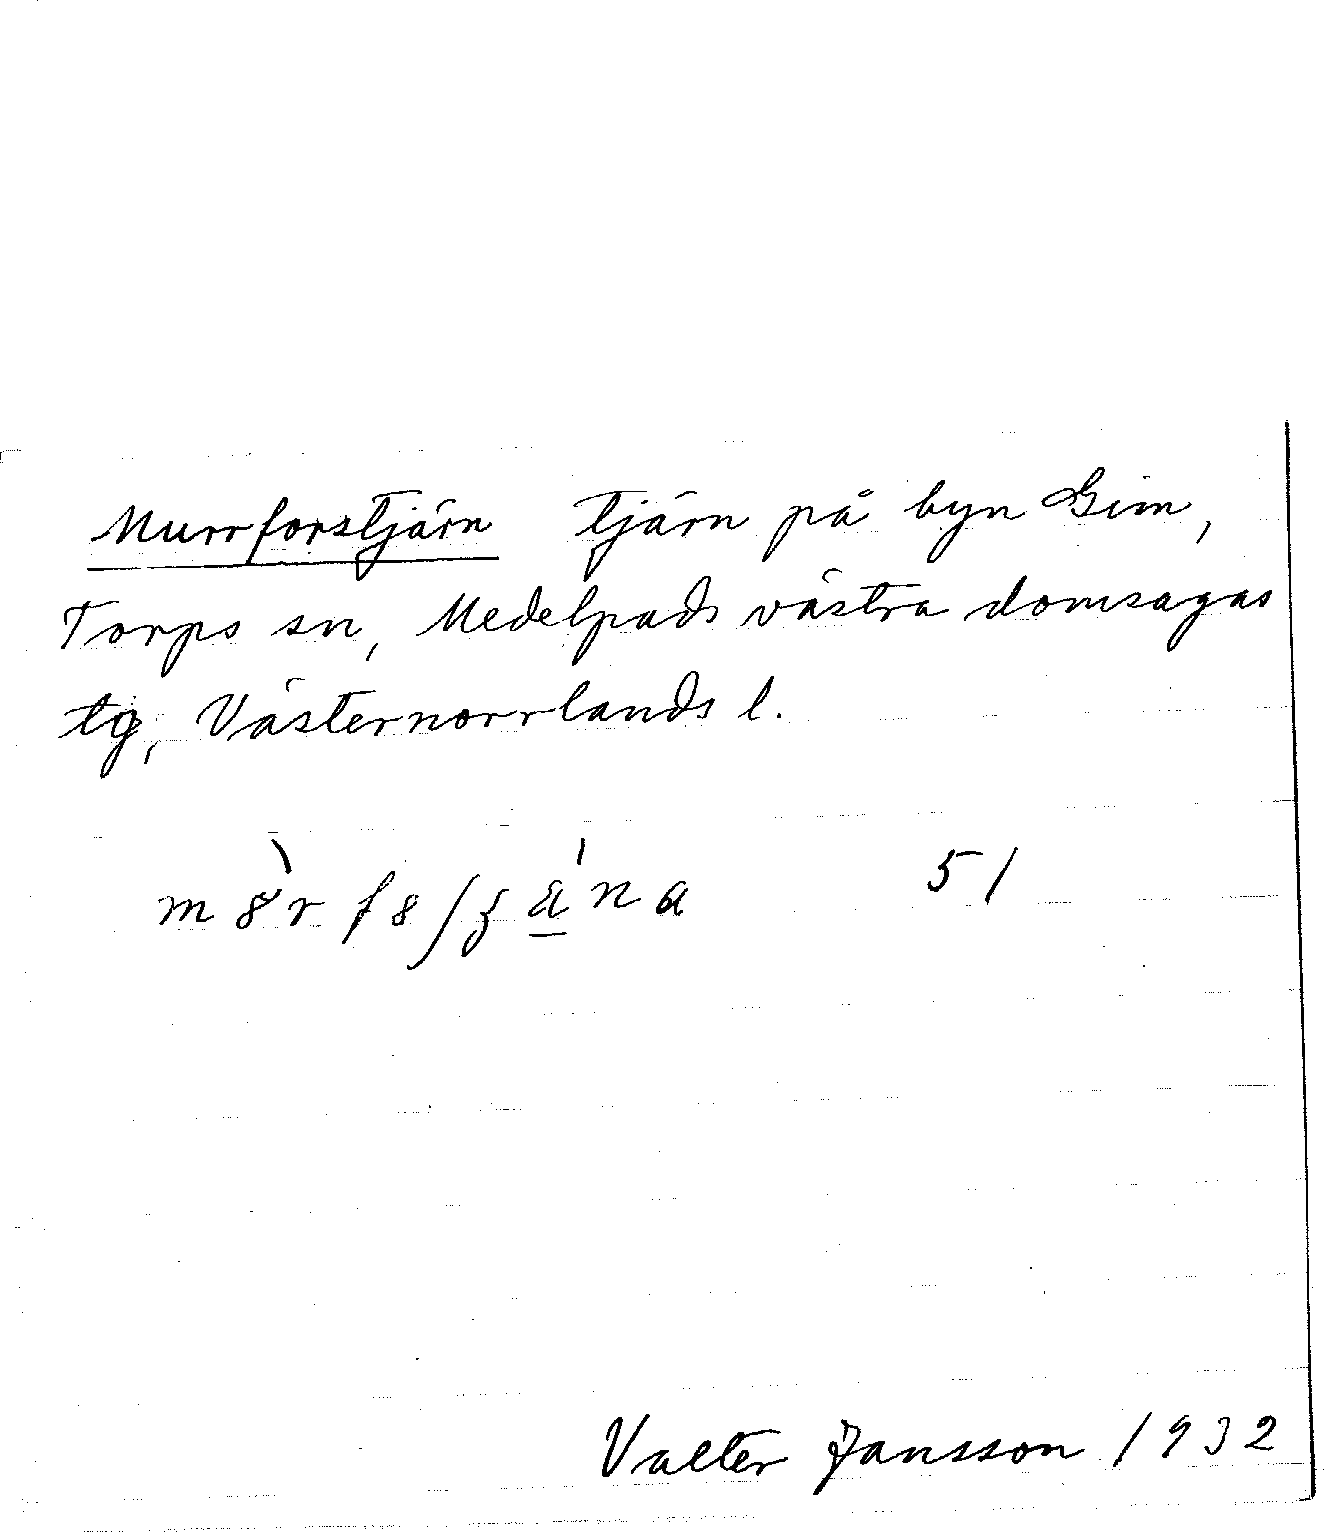 Murrforstjärn tjärn på byn Gim,
Torps sn, Medelpads västra domsagas
tg, Västernorrlands l.
51
Valter Jansson 1932